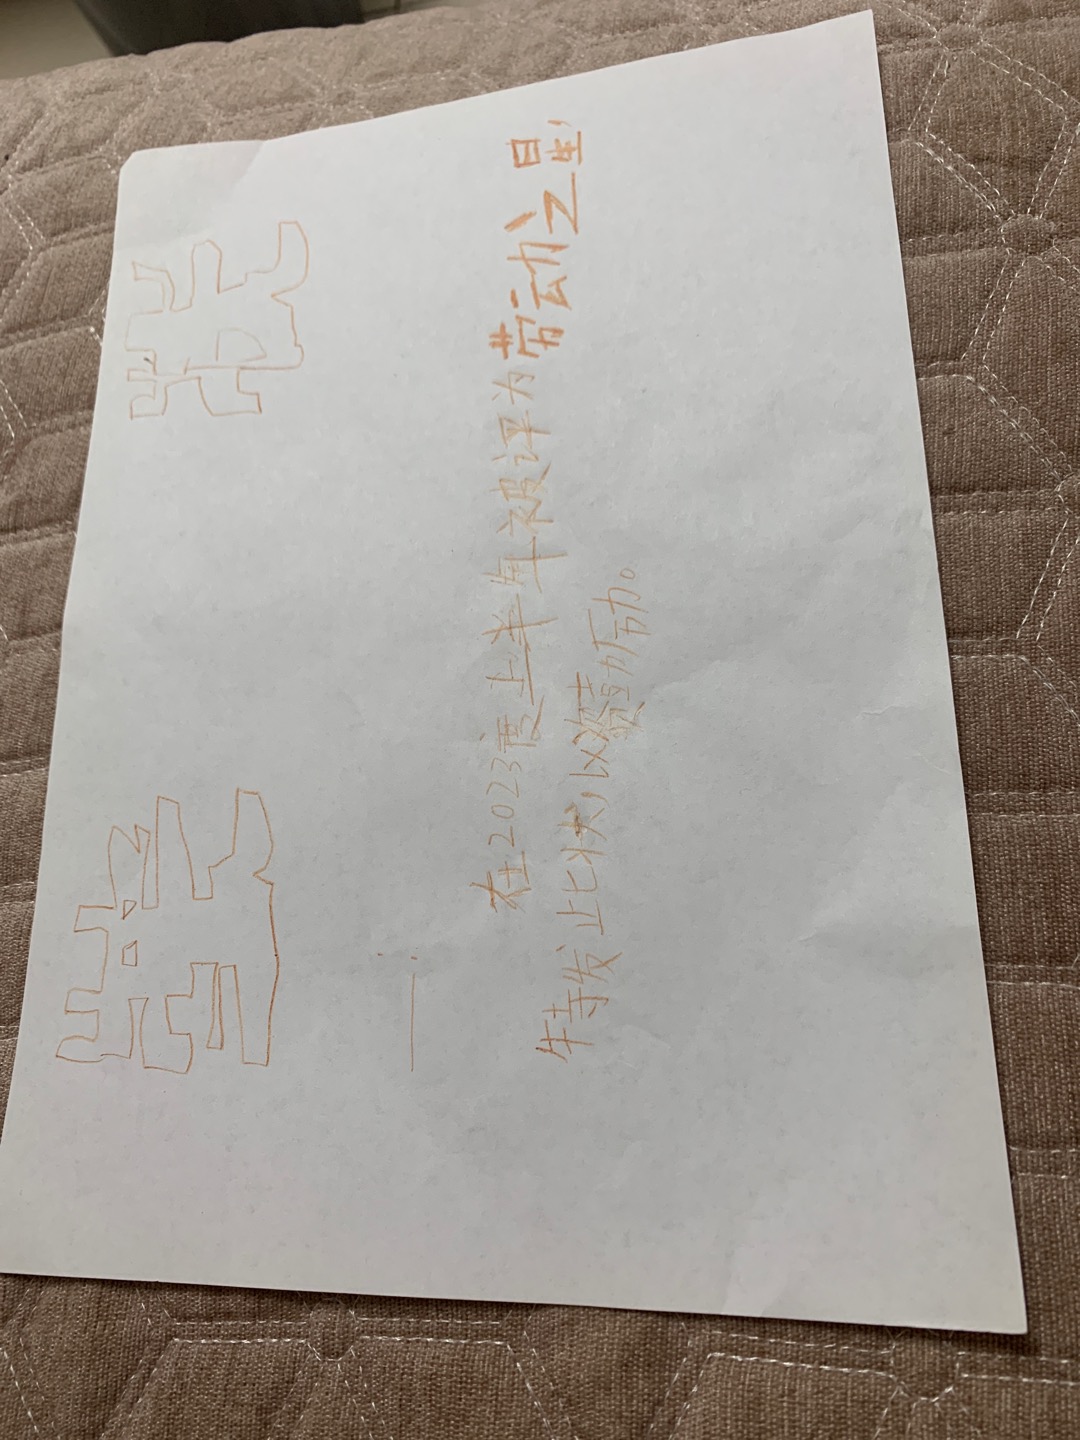 奖状
______:
在2023度上半年被评为劳动之星,
特发止匕状,以资励。